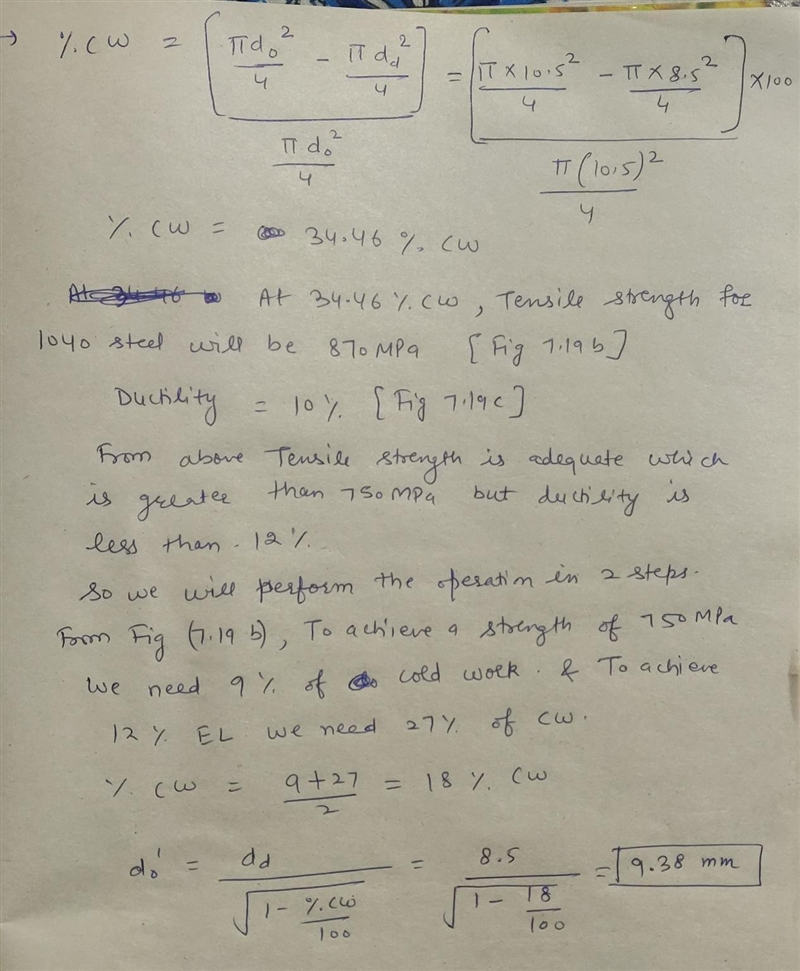 → % CW = [πd₀²/4 - πd_d²/4] / (πd₀²/4) = [π×10.5²/4 - π×8.5²/4] / (π(10.5)²/4) ×100
% CW = 34.46 % CW
At 34.46 % CW, Tensile strength for
1040 steel will be 870 MPa [Fig 7.19 b]
Ductility = 10 % [Fig 7.19 c]
From above Tensile strength is adequate which
is greater than 750 MPa but ductility is
less than 12 %.
So we will perform the operation in 2 steps.
From Fig (7.19 b), To achieve a strength of 750 MPa
we need 9 % of cold work. & To achieve
12 % EL we need 27 % of CW.
% CW = (9+27)/2 = 18 % CW
d₀' = d_d / √(1 - %CW/100) = 8.5 / √(1 - 18/100) = 9.38 mm